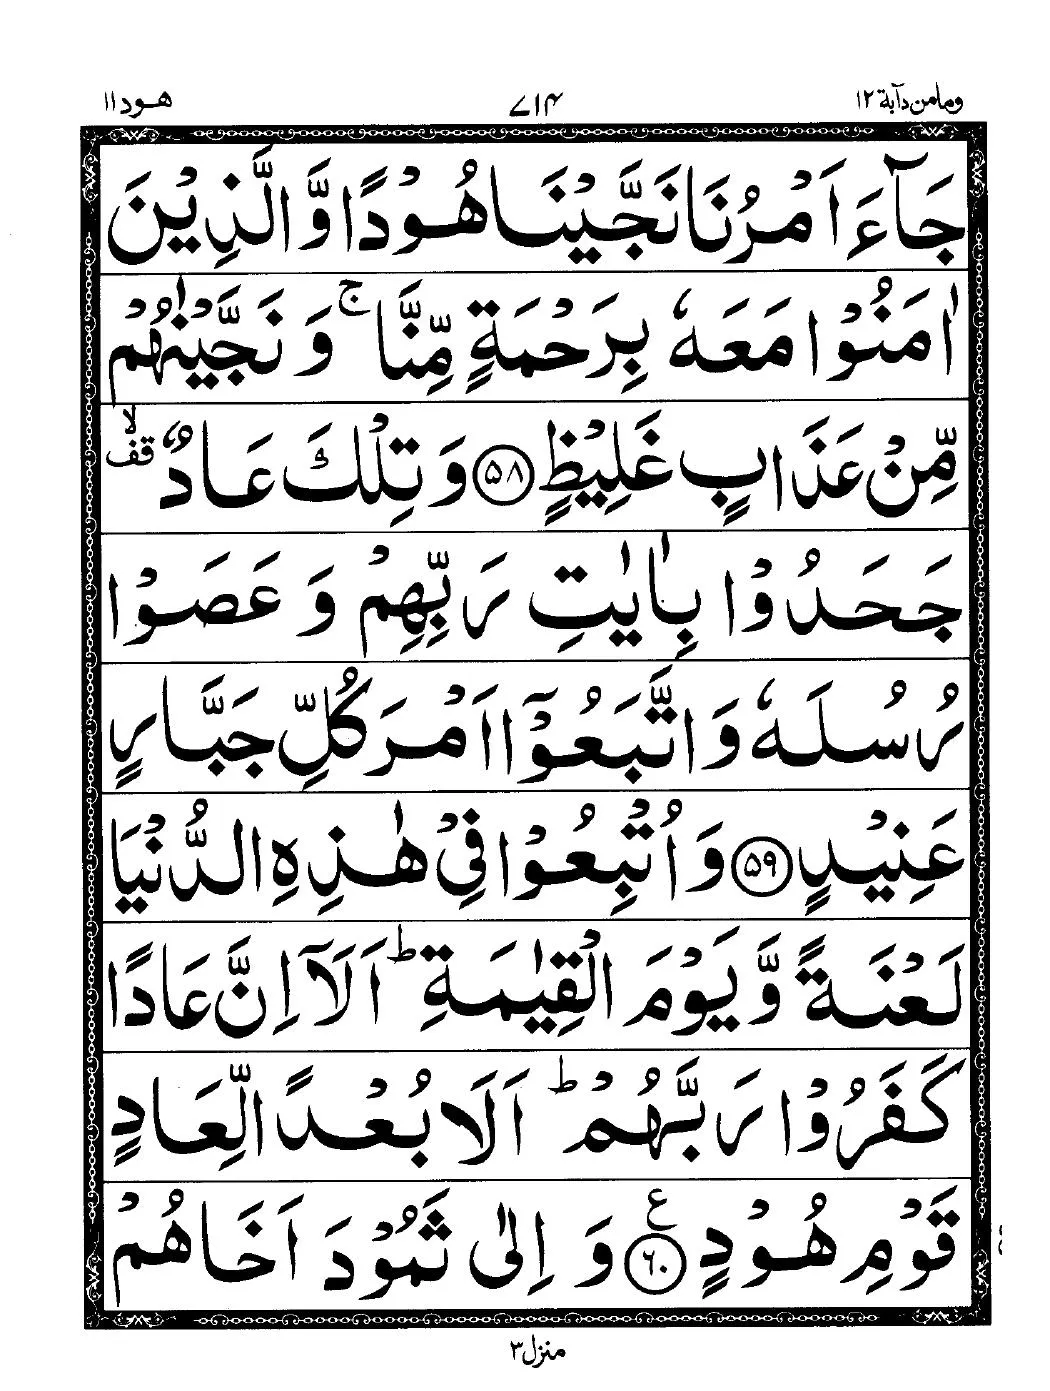 ومامن دآبة ١٢
٧١٤
هود ١١
جَآءَ اَمْرُنَا نَجَّيْنَا هُوْدًا وَّ الَّذِيْنَ
اٰمَنُوْا مَعَهٗ بِرَحْمَةٍ مِّنَّا ۚ وَ نَجَّيْنٰهُمْ
مِّنْ عَذَابٍ غَلِيْظٍ ۵۸ وَ تِلْكَ عَادٌ ۙ قف
جَحَدُوْا بِاٰيٰتِ رَبِّهِمْ وَ عَصَوْا
رُسُلَهٗ وَ اتَّبَعُوْۤا اَمْرَ كُلِّ جَبَّارٍ
عَنِيْدٍ ۵۹ وَ اُتْبِعُوْا فِيْ هٰذِهِ الدُّنْيَا
لَعْنَةً وَّ يَوْمَ الْقِيٰمَةِ ؕ اَلَاۤ اِنَّ عَادًا
كَفَرُوْا رَبَّهُمْ ؕ اَلَا بُعْدًا لِّعَادٍ
قَوْمِ هُوْدٍ ۶۰ ع وَ اِلٰى ثَمُوْدَ اَخَاهُمْ
منزل ٣